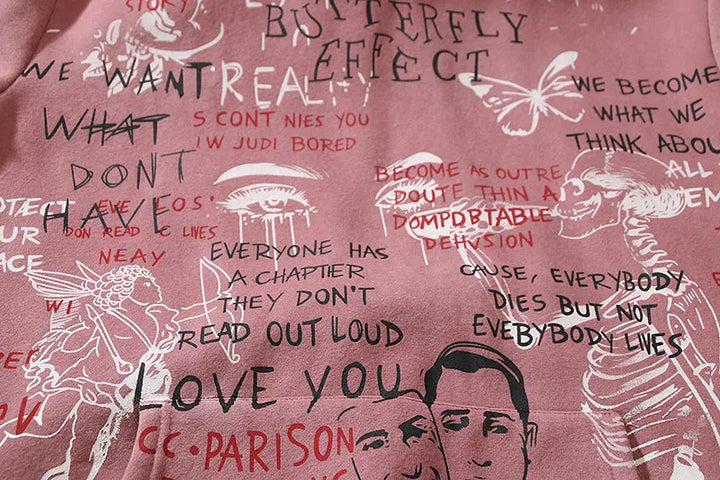 STORY
BUTTERFLY
EFFECT
WE WANT
REALITY
WHAT
DONT
HAVE
S CONT NIES YOU
IW JUDI BORED
WE BECOME
WHAT WE
THINK ABOU
BECOME AS OUTRE
DOUTE THIN A
DOMPDBTABLE
DEHVSION
ALL
EM
OTÆCT
UR
ACE
EVE LOS'
DON READ C LIVES
NEAY
EVERYONE HAS
A CHAPTIER
THEY DON'T
READ OUT LOUD
CAUSE, EVERYBODY
DIES BUT NOT
EVEBYBODY LIVES
WI
LOVE YOU
CC·PARISON